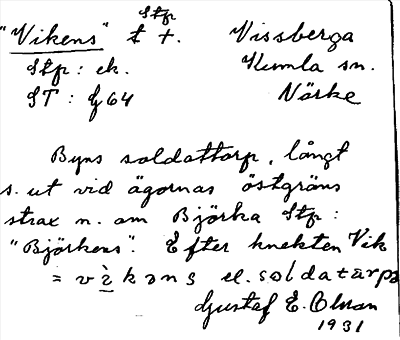 "Vikens" Stp t +. Vissberga
Stp: ek. Kumla sn.
ST: G 64 Närke
Byns soldattorp, långt
s. ut vid ägornas östgräns
strax n. om Björka Stp:
"Björkens". Efter knekten Vik
= v ì k ə n s el. soldatarpə
Gustaf E. Olman
1931